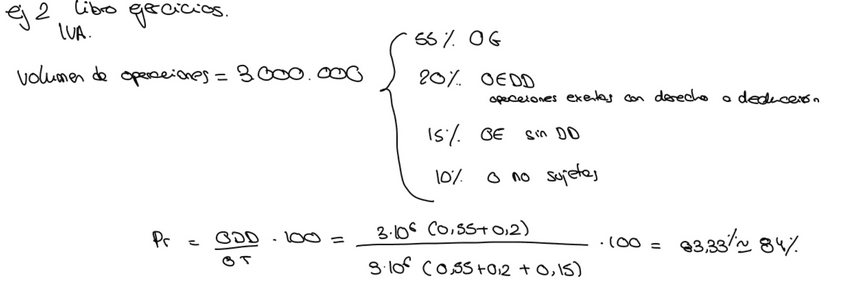 ej 2 Libro ejercicios.
IVA.
Volumen de operaciones = 3000.000
55% OG
20% OEDD
operaciones exentas con derecho a deducción
15% OE sin DD
10% O no sujetas
Pr = ODD / OT · 100 = 3·10⁶ (0,55+0,2) / 3·10⁶ (0,55+0,2+0,15) · 100 = 83,33% ≃ 84%